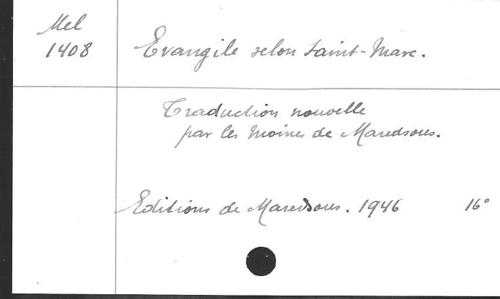 Mel
1408
Evangile selon saint-Marc.
Traduction nouvelle
par les Moines de Maredsous.
Editions de Maredsous. 1946 16°